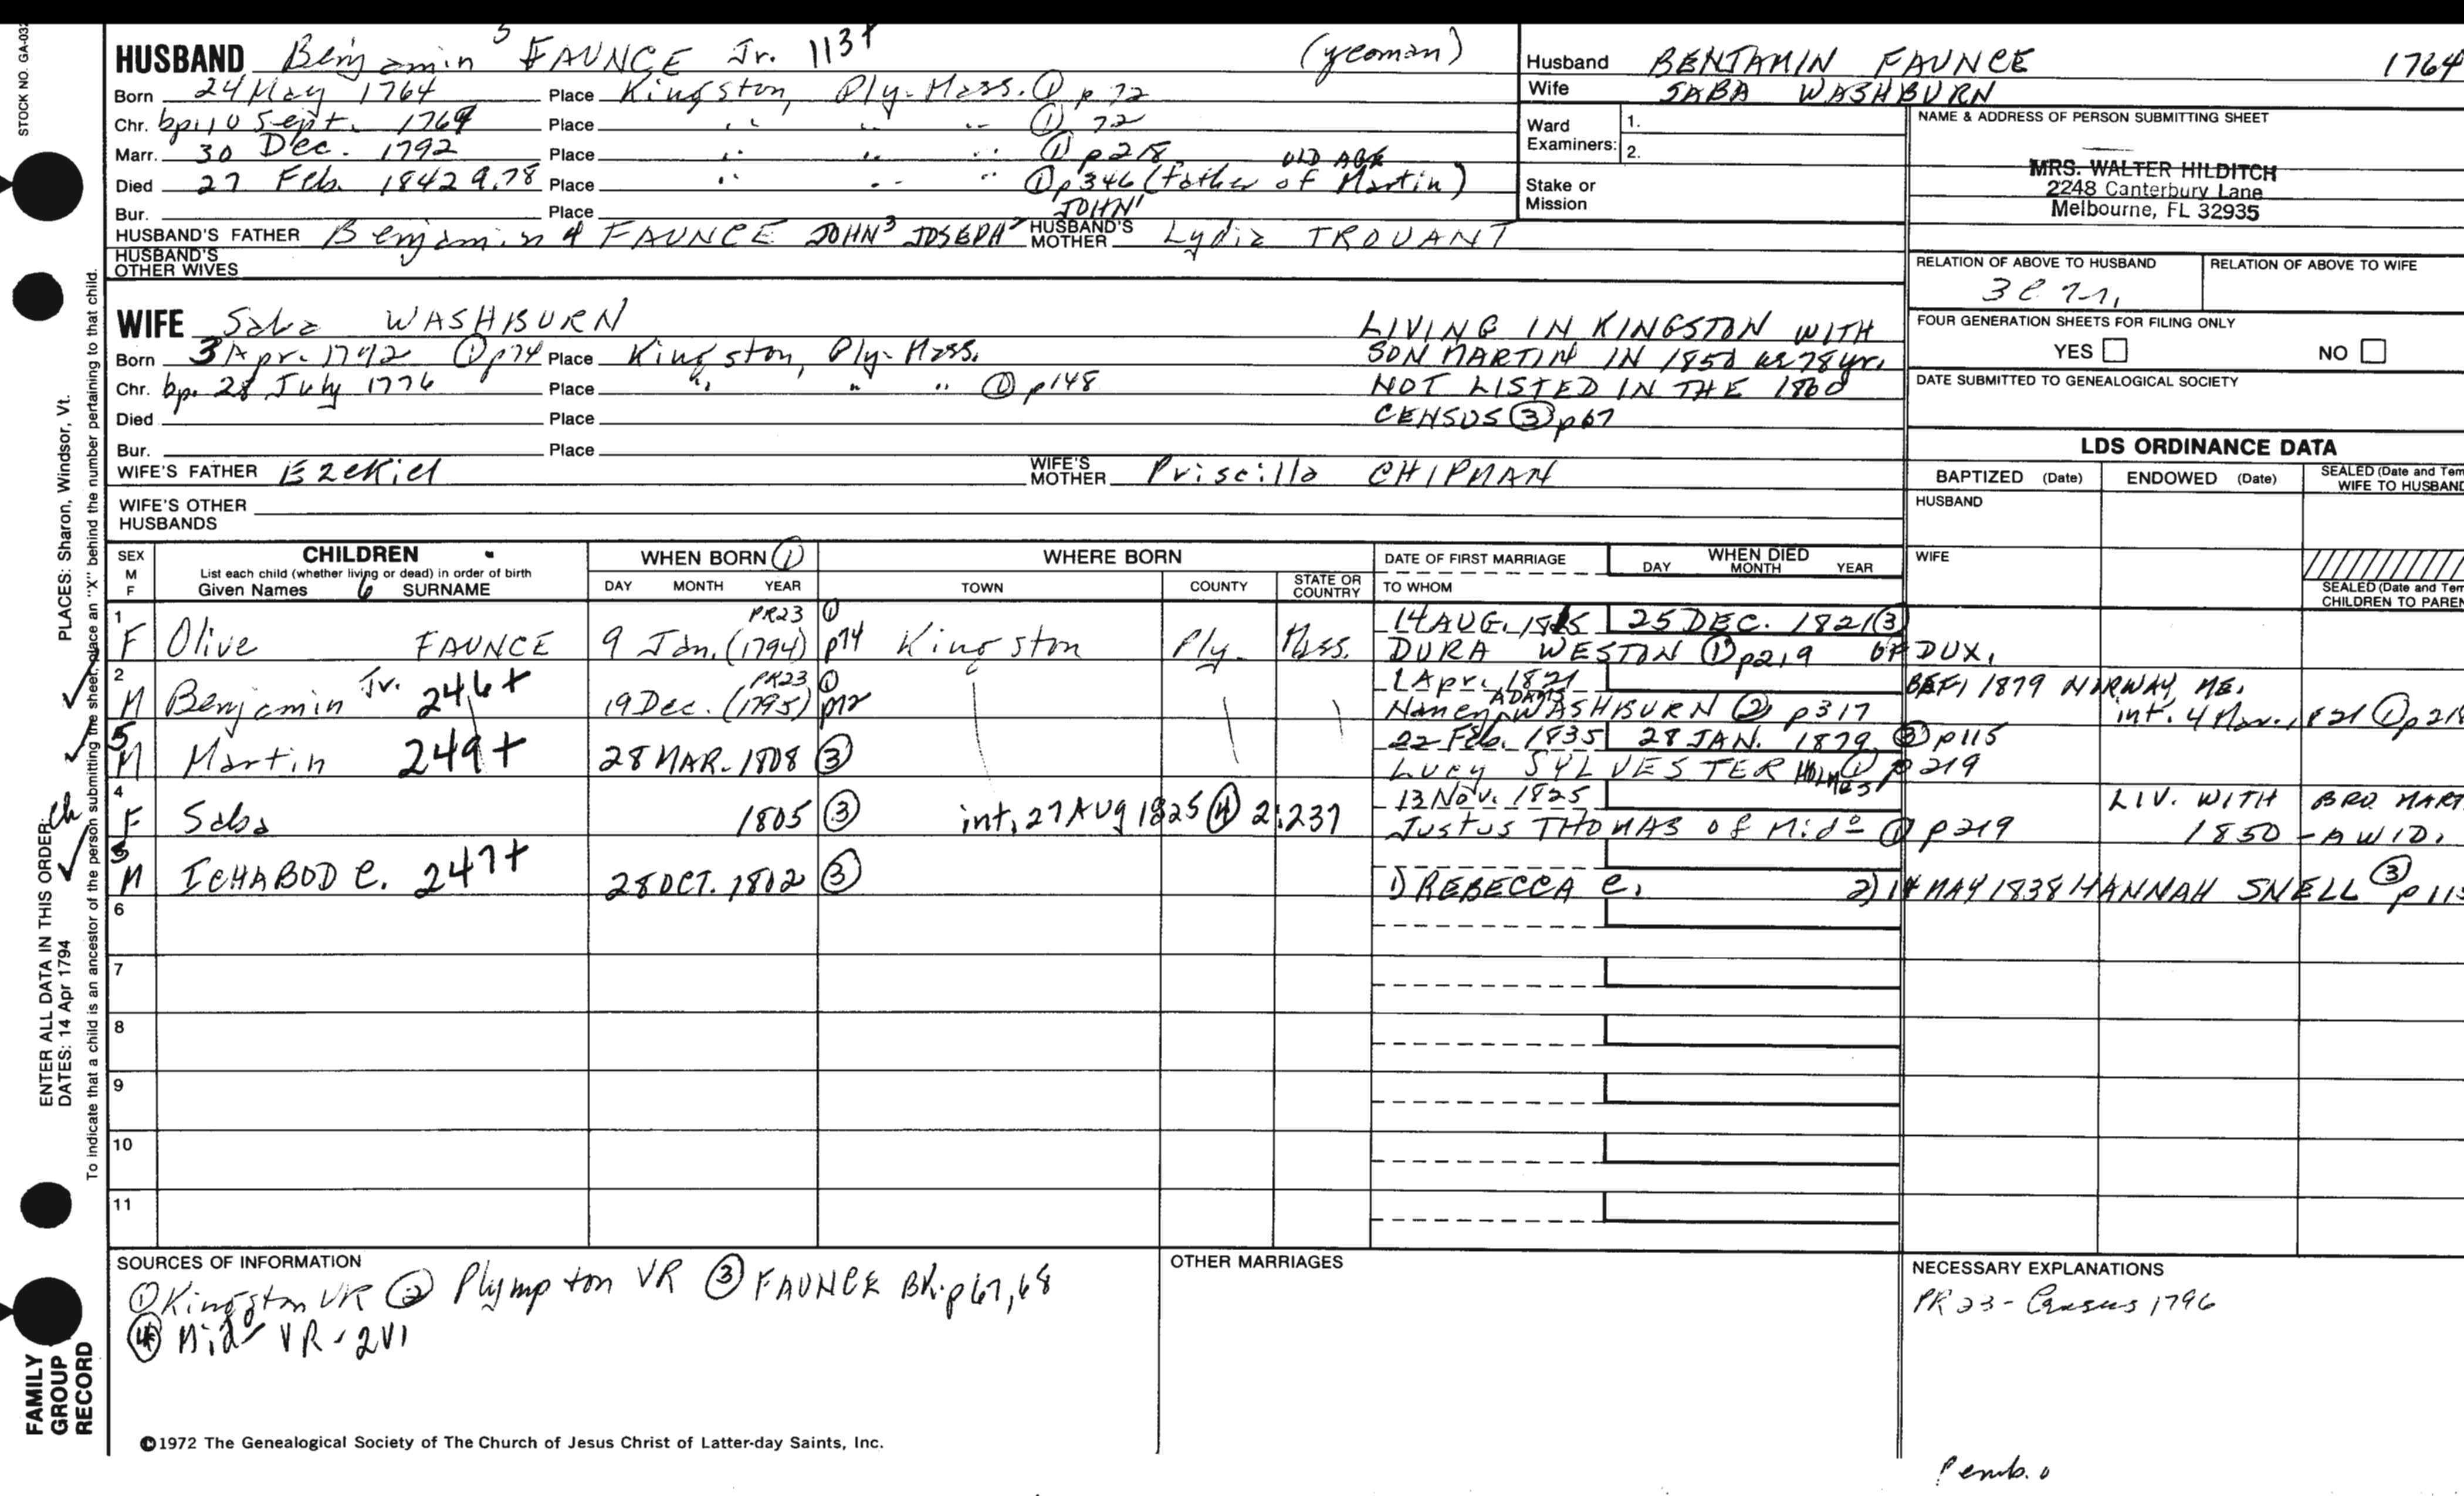 STOCK NO. GA-032
HUSBAND Benjamin 5 FAUNCE Jr. 113+ (yeoman)
Born 24 May 1764 Place Kingston, Ply. Mass. ① p 72
Chr. bp. 10 Sept. 1764 Place " " " ① 72
Marr. 30 Dec. 1792 Place " " " ① p 218
OLD AGE
Died 27 Feb. 1842 a. 78 Place " " " ① p 346 (father of Martin)
Bur. Place
JOHN 1
HUSBAND'S FATHER Benjamin 4 FAUNCE JOHN 3 JOSEPH 2 HUSBAND'S MOTHER Lydia TROUANT
HUSBAND'S OTHER WIVES
Husband BENJAMIN FAUNCE 1764
Wife SABA WASHBURN
Ward Examiners: 1.
2.
Stake or Mission
NAME & ADDRESS OF PERSON SUBMITTING SHEET
MRS. WALTER HILDITCH
2248 Canterbury Lane
Melbourne, FL 32935
RELATION OF ABOVE TO HUSBAND RELATION OF ABOVE TO WIFE
FOUR GENERATION SHEETS FOR FILING ONLY
YES NO
DATE SUBMITTED TO GENEALOGICAL SOCIETY
WIFE Saba WASHBURN
Born 3 Apr. 1772 ① p74 Place Kingston, Ply. Mass.
Chr. bp. 28 July 1776 Place " " " ① p148
Died Place
Bur. Place
LIVING IN KINGSTON WITH
SON MARTIN IN 1850 as 78 yr.
NOT LISTED IN THE 1860
CENSUS ③ p67
WIFE'S FATHER Ezekiel WIFE'S MOTHER Priscilla CHIPMAN
WIFE'S OTHER HUSBANDS
LDS ORDINANCE DATA
BAPTIZED (Date) ENDOWED (Date) SEALED (Date and Tem
WIFE TO HUSBAND
HUSBAND
WIFE
SEALED (Date and Tem
CHILDREN TO PAREN
SEX M F CHILDREN WHEN BORN ① WHERE BORN DATE OF FIRST MARRIAGE WHEN DIED
List each child (whether living or dead) in order of birth
Given Names 6 SURNAME DAY MONTH YEAR TOWN COUNTY STATE OR COUNTRY TO WHOM DAY MONTH YEAR
1 F Olive FAUNCE 9 Jan. (1794) PR23 ① p74 Kingston Ply. Mass. 14 AUG. 1815 25 DEC. 1821 ③
DURA WESTON ① p219 OF DUX.
2 M Benjamin Jr. 246+ 19 Dec. (1795) PR23 ① p72 1 Apr. 1821 BEF. 1879 NORWAY, ME.
Nancy ADAMS WASHBURN ② p317 int. 4 Mar. 1821 ① p21
5 M Martin 249+ 28 MAR. 1808 ③ 22 Feb. 1835 28 JAN. 1879 ③ p115
LUCY SYLVESTER HOLMES ① p 219
4 F Saba 1805 ③ int. 27 AUG 1825 ④ 2:237 13 Nov. 1825 LIV. WITH BRO MART
Justus THOMAS of Mido ① p219 1850 - A WID.
3 M ICHABOD C. 247+ 28 OCT. 1802 ③ 1) REBECCA C. 2) 14 MAY 1838 HANNAH SNELL ③ p 115
6
7
8
9
10
11
SOURCES OF INFORMATION
① Kingston VR ② Plympton VR ③ FAUNCE BK. p 67, 68
④ Mid VR - 2V1
OTHER MARRIAGES
NECESSARY EXPLANATIONS
PR 23 - Census 1796
©1972 The Genealogical Society of The Church of Jesus Christ of Latter-day Saints, Inc.
Pemb.
FAMILY GROUP RECORD
ENTER ALL DATA IN THIS ORDER:
DATES: 14 Apr 1794 PLACES: Sharon, Windsor, Vt.
To indicate that a child is an ancestor of the person submitting the sheet, place an "X" behind the number pertaining to that child.
ch